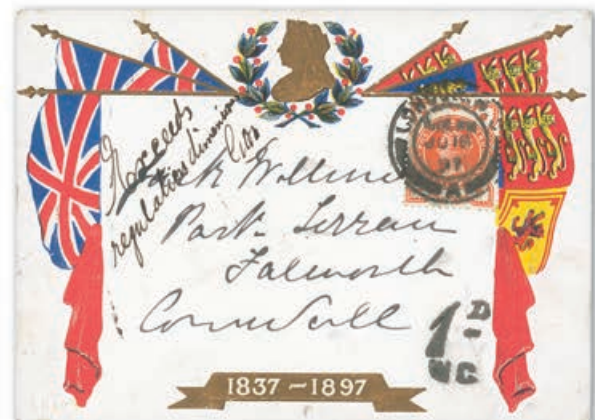 Exceeds
regulation dimensions
Park Terrace
Falmouth
Cornwall
LONDON
JU 18
97
1D
WC
1837 - 1897